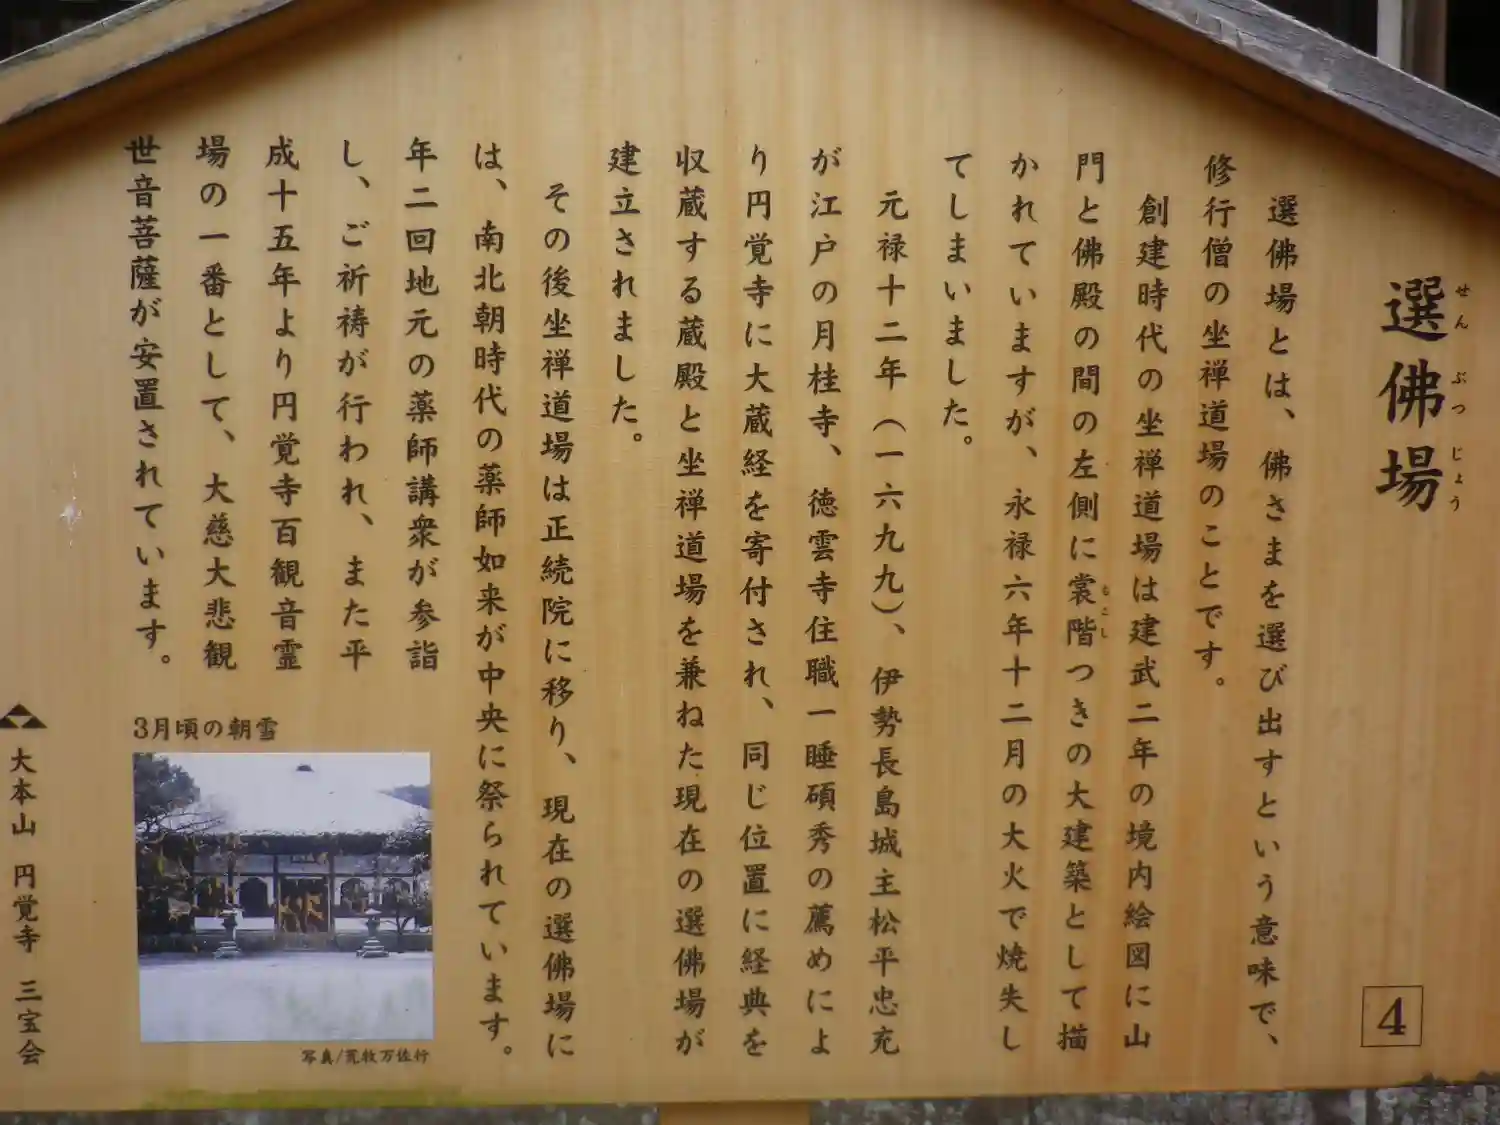 選佛場
せん ぶつ じょう
選佛場とは、佛さまを選び出すという意味で、
修行僧の坐禅道場のことです。
創建時代の坐禅道場は建武二年の境内絵図に山
門と佛殿の間の左側に裳階つきの大建築として描
もこし
かれていますが、永禄六年十二月の大火で焼失し
てしまいました。
元禄十二年（一六九九）、伊勢長島城主松平忠充
が江戸の月桂寺、徳雲寺住職一睡碩秀の薦めによ
り円覚寺に大蔵経を寄付され、同じ位置に経典を
収蔵する蔵殿と坐禅道場を兼ねた現在の選佛場が
建立されました。
その後坐禅道場は正続院に移り、現在の選佛場に
は、南北朝時代の薬師如来が中央に祭られています。
年二回地元の薬師講衆が参詣
し、ご祈祷が行われ、また平
成十五年より円覚寺百観音霊
場の一番として、大慈大悲観
世音菩薩が安置されています。
3月頃の朝雪
写真/荒牧万佐行
大本山 円覚寺 三宝会
4